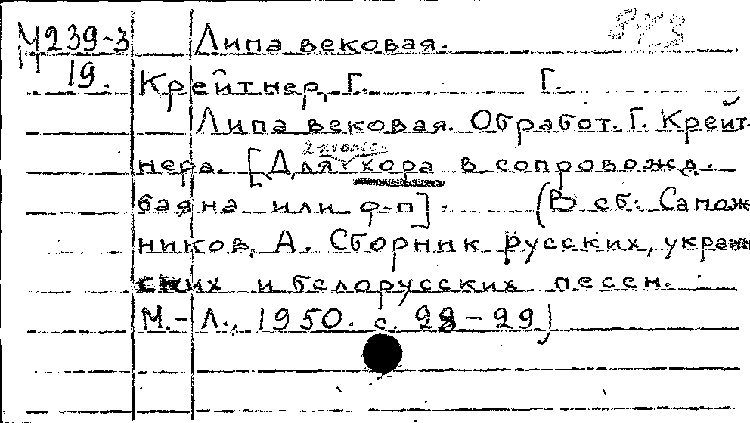 М239-3 Липа вековая.
19. Крейтнер, Г. Г.
Липа вековая. Обработ. Г. Крейт-
нера. [Для хора в сопровожд.
баяна или ф-п]. (В сб: Сапож
ников, А. Сборник русских, украин
ских и белорусских песен.
М.-Л., 1950. с. 28-29)